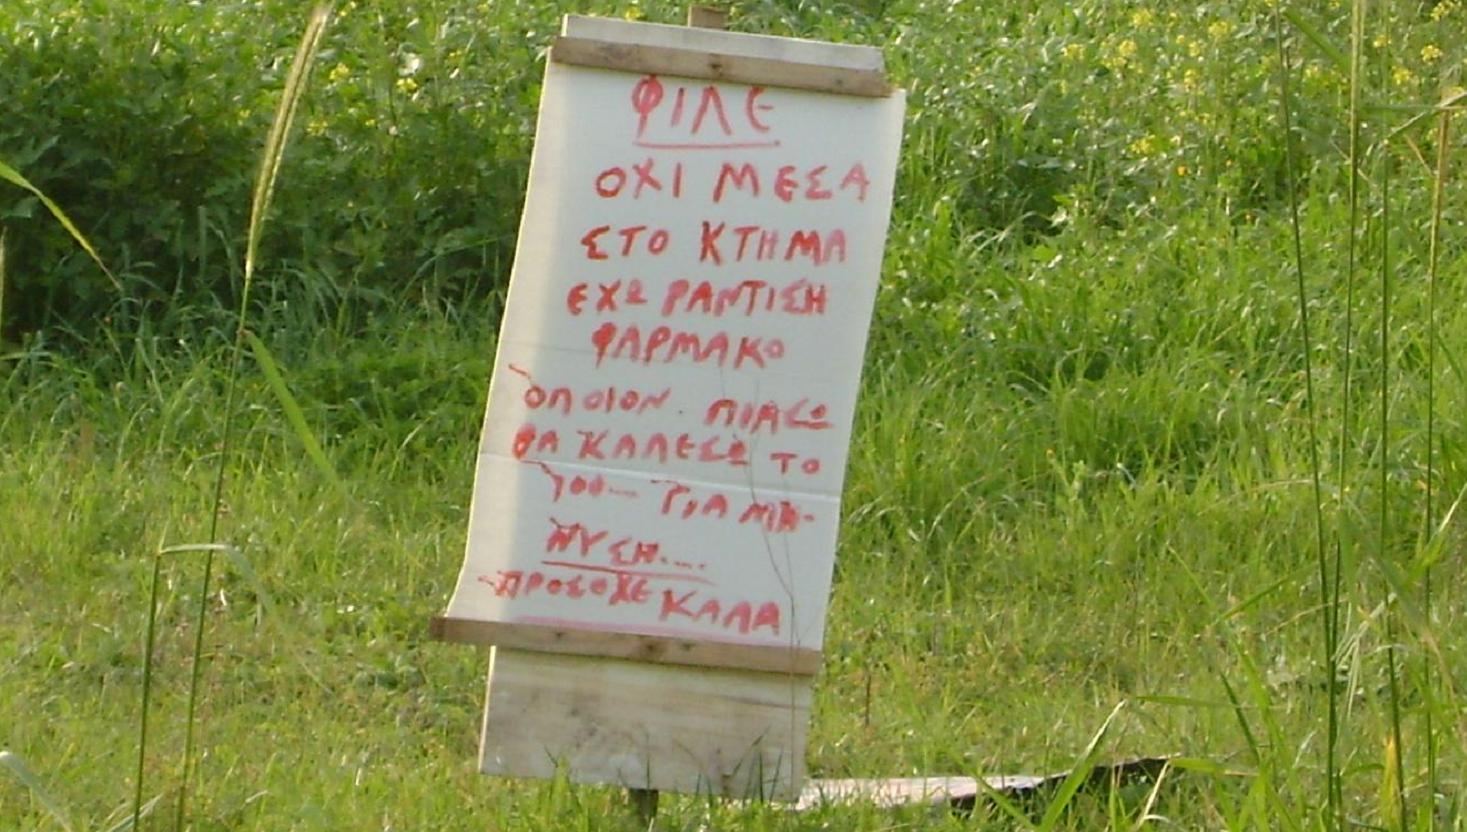 ΦΙΛΕ
ΟΧΙ ΜΕΣΑ
ΣΤΟ ΚΤΗΜΑ
ΕΧΩ ΡΑΝΤΙΣΗ
ΦΑΡΜΑΚΟ
ΟΠΟΙΟΝ ΠΙΑΣΩ
ΘΑ ΚΑΛΕΣΩ ΤΟ
100... ΓΙΑ ΜΗ-
ΝΥΣΗ....
ΠΡΟΣΟΧΕ ΚΑΛΑ